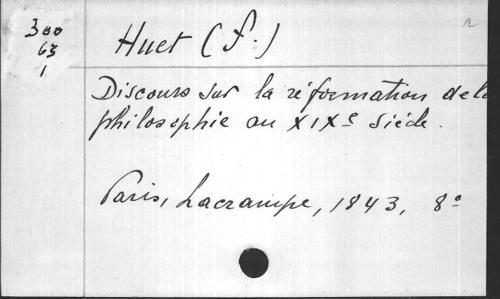 300
63
1
Huet (F.)
Discours sur la réformation de la
philosophie au XIXe siècle.
Paris, Lacrampe, 1843, 8°